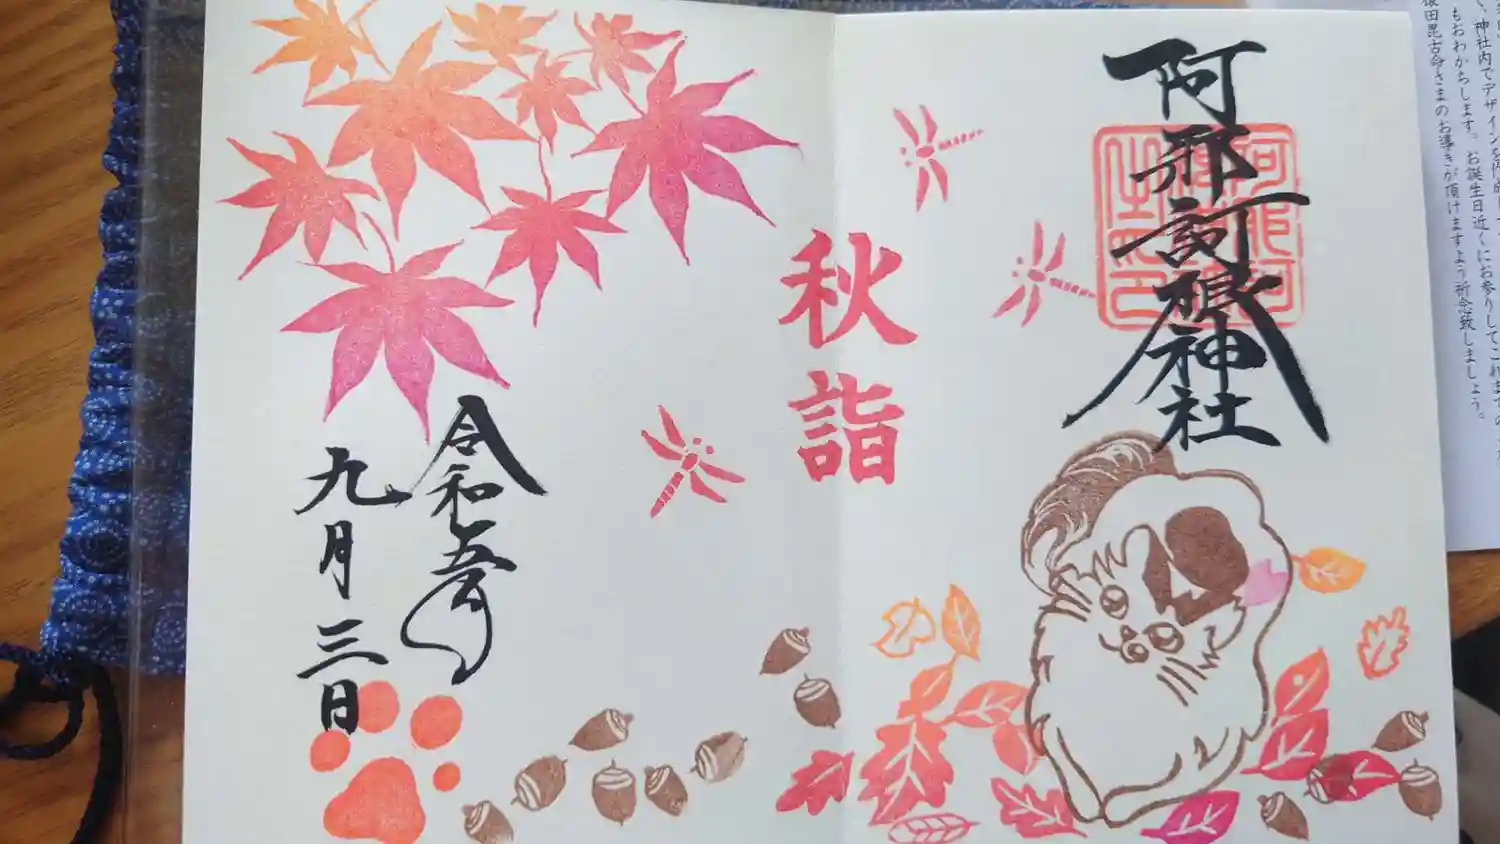 、神社内でデザインを作成し
もおわかちします。お誕生日近くにお参りしてこれまでの
猿田毘古命さまのお導きが頂けますよう祈念致しましょう。
阿邪訶根神社
秋詣
令和五年
九月三日